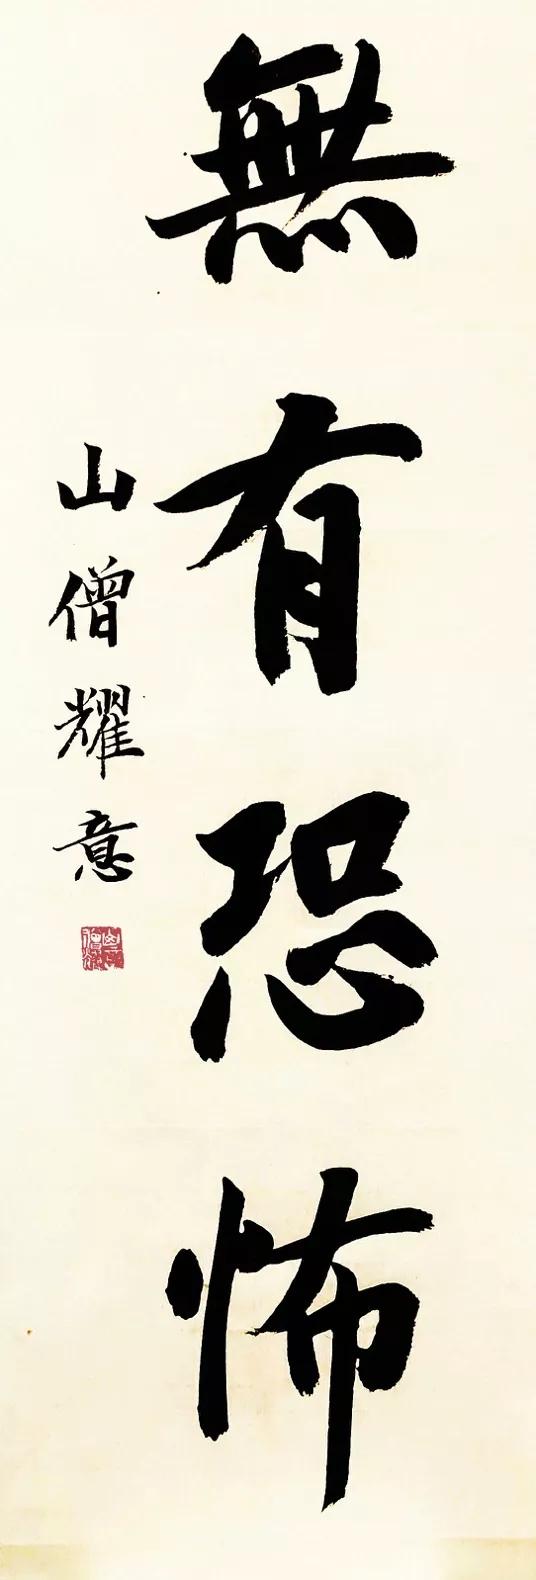 無有恐怖
山僧耀意